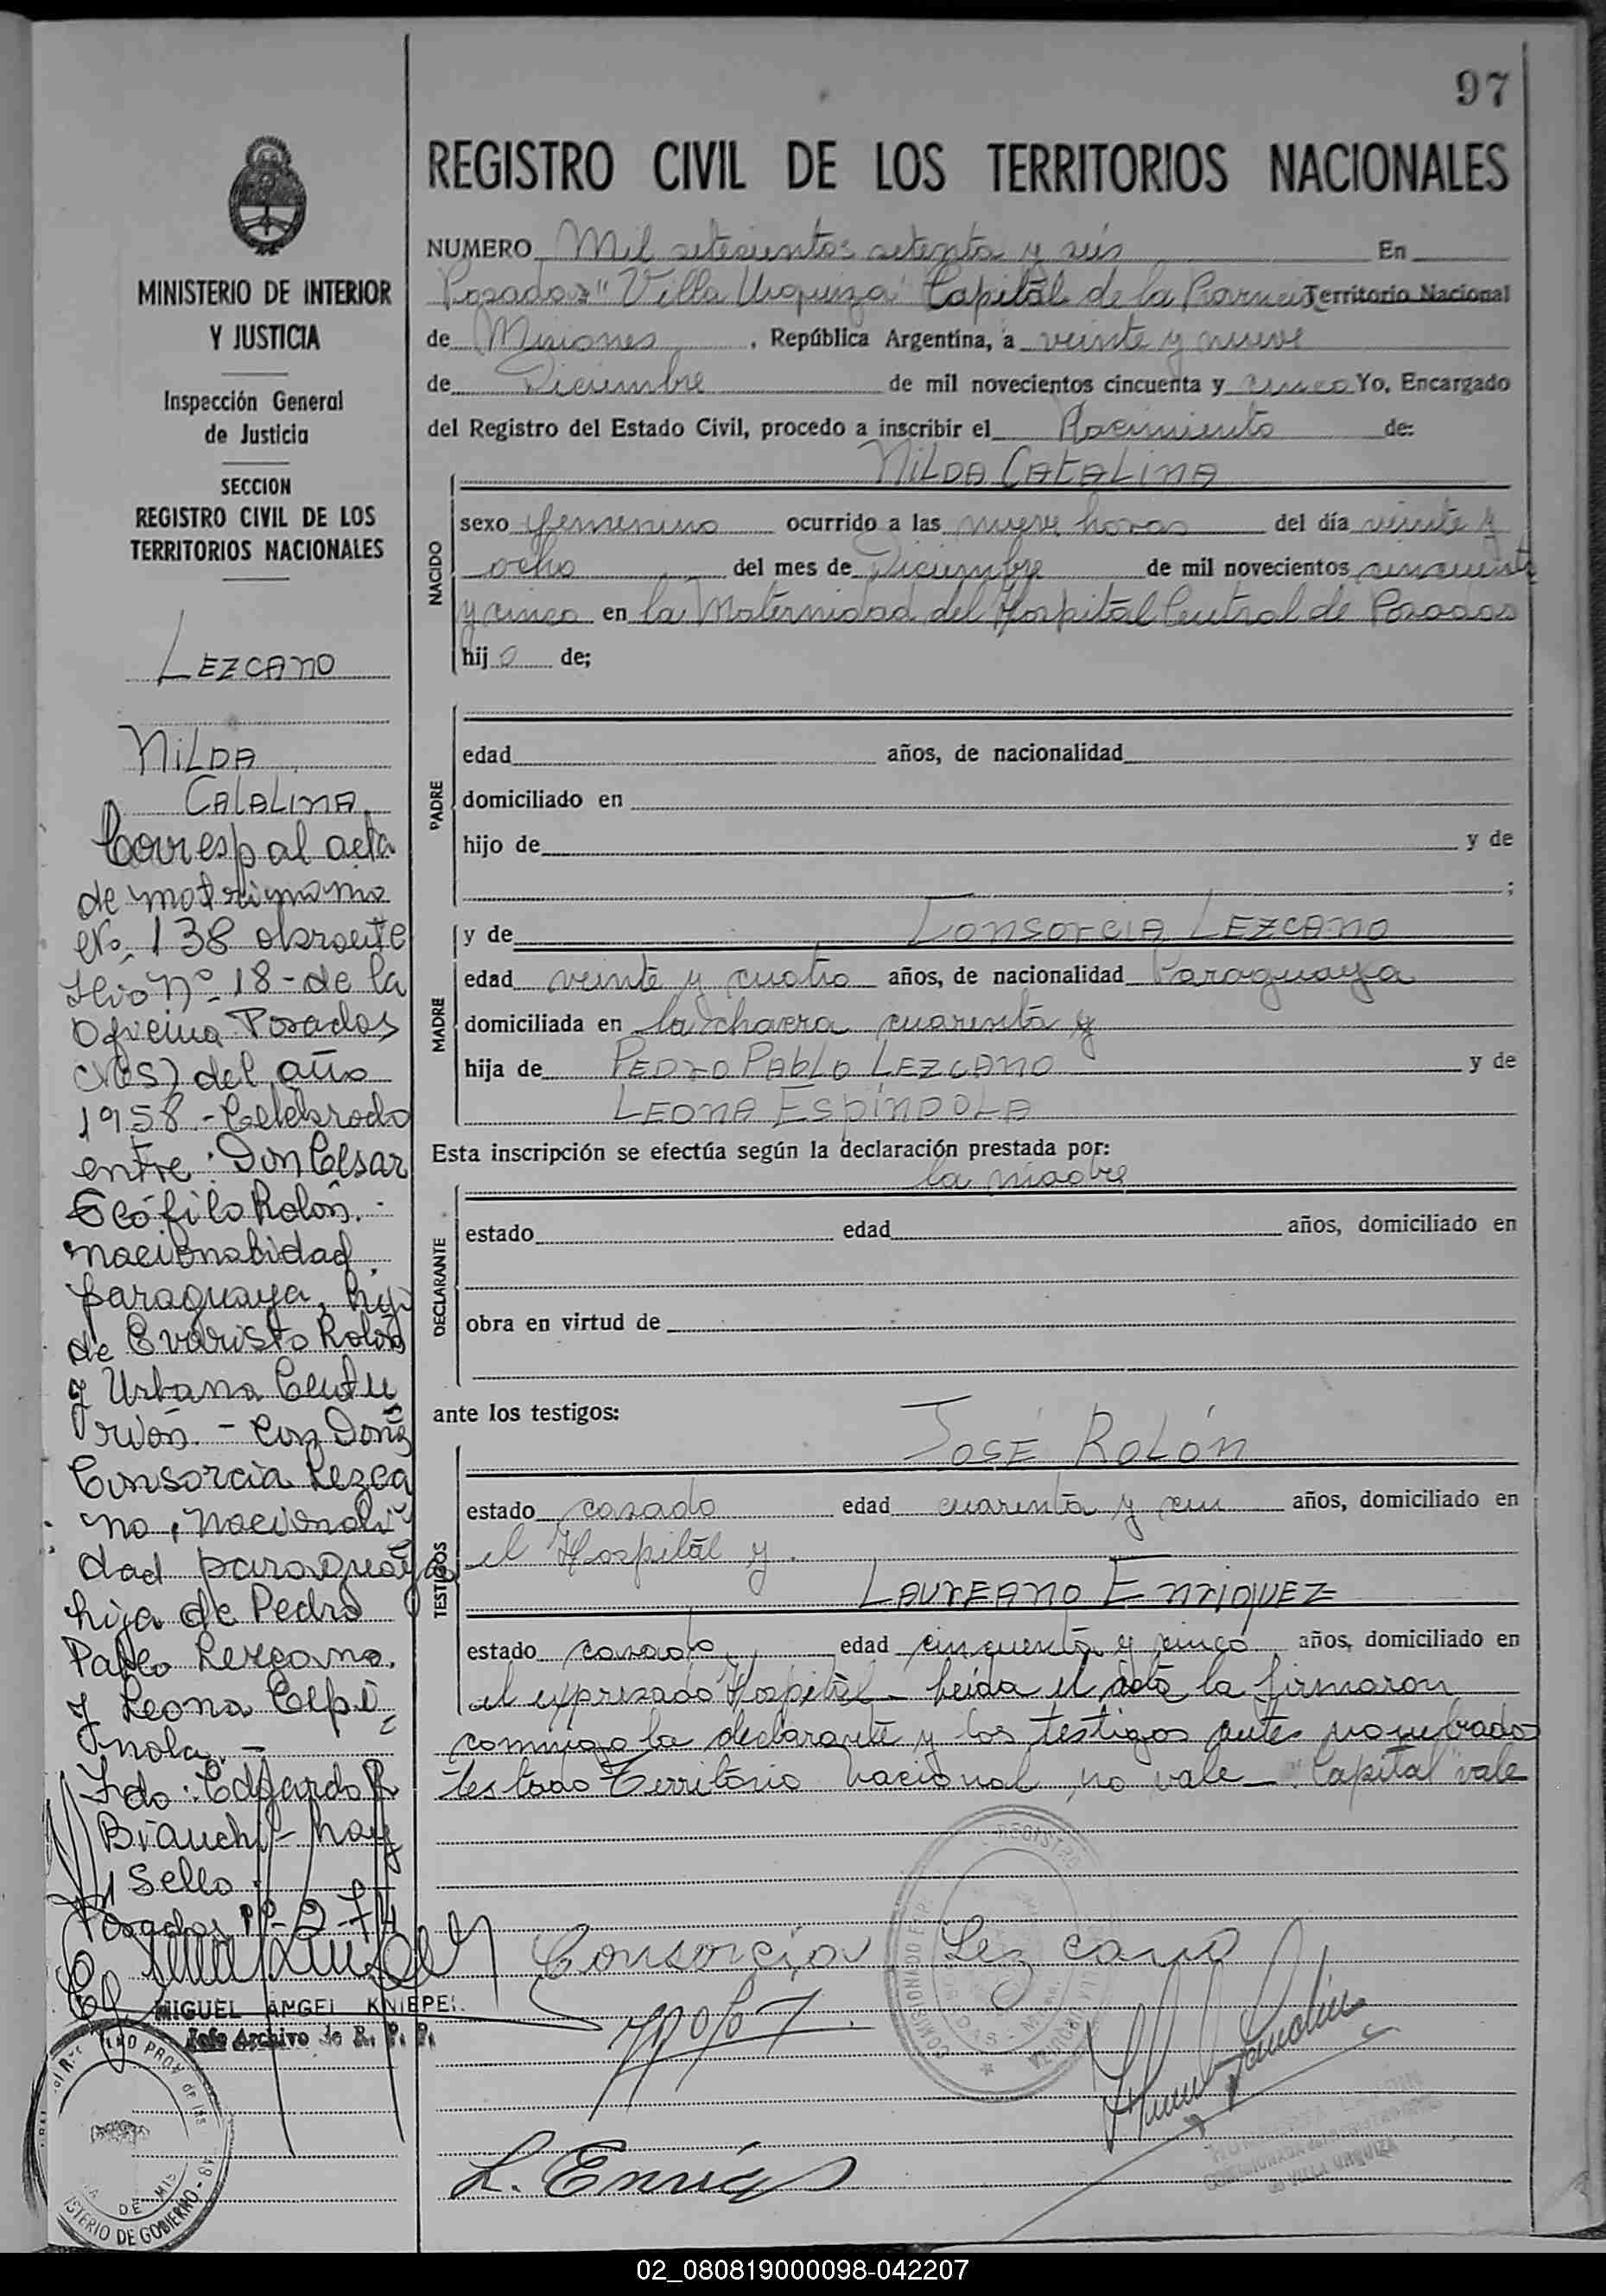 97
REGISTRO CIVIL DE LOS TERRITORIOS NACIONALES
MINISTERIO DE INTERIOR
Y JUSTICIA
Inspección General
de Justicia
SECCION
REGISTRO CIVIL DE LOS
TERRITORIOS NACIONALES
LEZCANO
NILDA
CATALINA
Corresp al acta
de matrimonio
No. 138 obrante
Nº 18 - de la
Oficina Posadas
del año
1958 - Celebrado
entre: Don Cesar
Teófilo Rolón. -
nacionalidad
paraguaya, hijo
de Evaristo Rolón
y Urbana Centu
rión. - Con Doña
Consorcia Lezca
no, nacionali
dad paraguaya
hija de Pedro
Pablo Lezcano.
y Leona Espi
nola. -
Fdo: Edgardo R
Bianchi - hay
1 sello.
Posadas 2-74
MIGUEL ANGEL KNIEPEL
Jefe Archivo de R. P. P.
DE MIS
ISTERIO DE GOBIERNO
NUMERO Mil setecientos setenta y seis En
Posadas "Villa Urquiza" Capital de la Territorio Nacional
de Misiones, República Argentina, a veinte y nueve
de Diciembre de mil novecientos cincuenta y cinco Yo, Encargado
del Registro del Estado Civil, procedo a inscribir el Nacimiento de:
NACIDO
NILDA CATALINA
sexo femenino ocurrido a las nueve horas del día veinte y
ocho del mes de Diciembre de mil novecientos cincuenta
y cinco en la Maternidad del Hospital Central de Posadas
hija de;
PADRE
edad años, de nacionalidad
domiciliado en
hijo de y de
;
MADRE
y de CONSORCIA LEZCANO
edad veinte y cuatro años, de nacionalidad Paraguaya
domiciliada en la chacra cuarenta y
hija de PEDRO PABLO LEZCANO y de
LEONA ESPÍNDOLA
Esta inscripción se efectúa según la declaración prestada por:
DECLARANTE
la madre
estado edad años, domiciliado en
obra en virtud de
ante los testigos:
TESTIGOS
JOSÉ ROLÓN
estado casado edad cuarenta y años, domiciliado en
el Hospital y
LAUREANO ENRIQUEZ
estado casado, edad cincuenta y cinco años, domiciliado en
el expresado Hospital - Leida el acta la firmaron
conmigo la declarante y los testigos antes nombrados
testado Territorio Nacional no vale - "Capital" vale
Consorcia Lezcano
L. Enriq
02_080819000098-042207